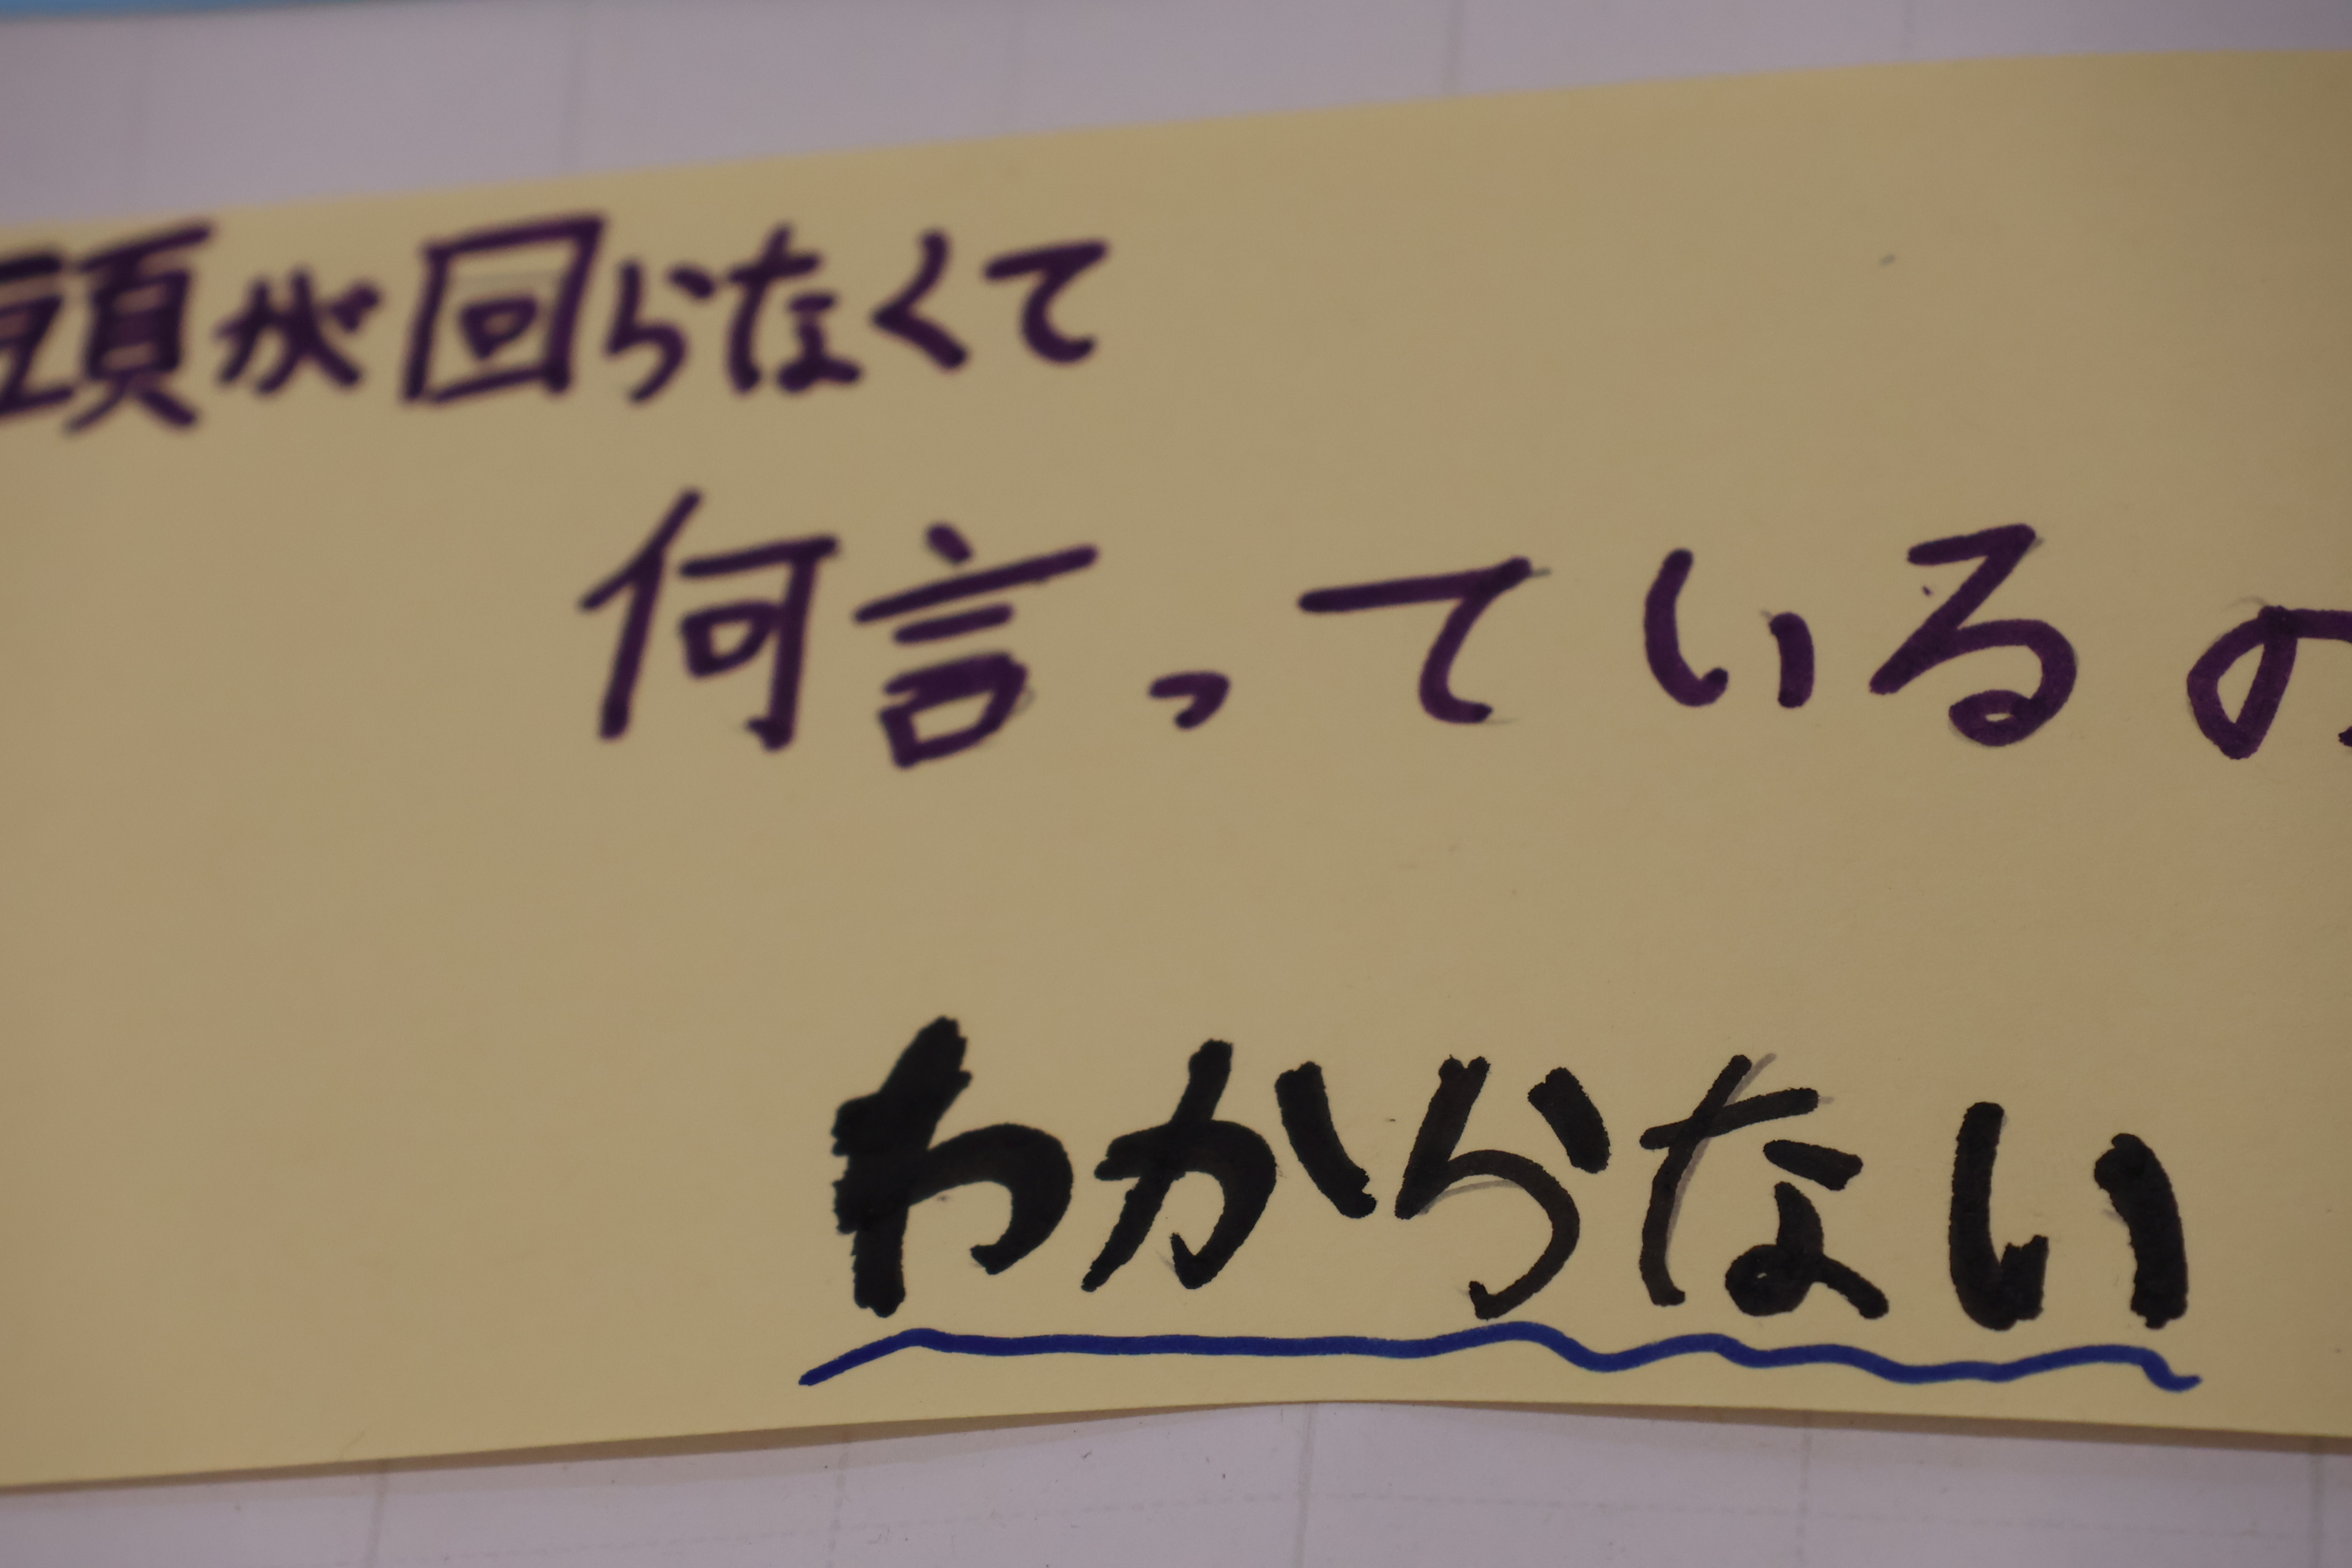 頭が回らなくて
何言っているの
わからない